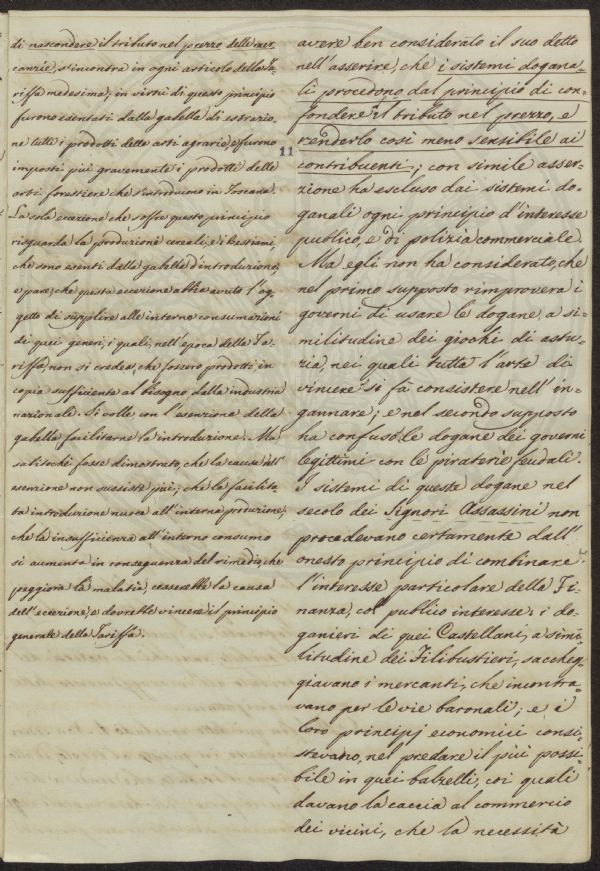 di nascondere il tributo nel prezzo delle mer-
canzie, s'incontra in ogni articolo della Ta-
riffa medesima; in virtù di questo principio
furono esentati dalla gabella di estrazio-
ne tutti i prodotti delle arti agrarie, e furono
imposti più gravemente i prodotti delle
arti forestiere che s'introducono in Toscana.
La sola eccezione che soffre questo principio
risguarda le produzioni cereali, e i Bestiami,
che sono esenti dalla gabella d'introduzione,
e pare, che questa eccezione abbia avuto l'og-
getto di supplire alle interne consumazioni
di quei generi, i quali, nell'epoca della Ta-
riffa non si credea, che fossero prodotti in
copia sufficiente al bisogno dalla industria
nazionale. Si volle con l'esenzione della
gabella facilitarne la introduzione. Ma
subitochè fosse dimostrato, che la causa dell'
esenzione non sussiste più; che la facilita-
ta introduzione nuoce all'interna produzione,
che la insufficienza all'interno consumo
si aumenta in conseguenza del rimedio, che
peggiora la malatia, cesserebbe la causa
dell'eccezione, e dovrebbe vincere il principio
generale della Tariffa.
11
avere ben considerato il suo detto
nell'asserire, che i sistemi dogana-
li procedono dal principio di con-
fondere il tributo nel prezzo, e
renderlo così meno sensibile ai
contribuenti; con simile asser-
zione ha escluso dai sistemi do-
ganali ogni principio d'interesse
pubblico, e di polizia commerciale.
Ma egli non ha considerato, che
nel primo supposto rimprovera i
governi di usare le dogane, a si-
militudine dei giochi di astu-
zia, nei quali tutta l'arte di
vincere si fà consistere nell'in-
gannare; e nel secondo supposto
ha confuso le dogane dei governi
legittimi con le piraterie feudali.
I sistemi di queste dogane nel
secolo dei Signori Assassini non
procedevano certamente dall'
onesto principio di combinare
l'interesse particolare della Fi-
nanza, col pubblico interesse: i do-
ganieri di quei Castellani, a simi-
litudine dei Filibustieri, saccheg-
giavano i mercanti, che incontra-
vano per le vie baronali; e i
loro principj economici consi-
stevano, nel predare il più possi-
bile in quei balzelli, coi quali
davano la caccia al commercio
dei vicini, che la necessità